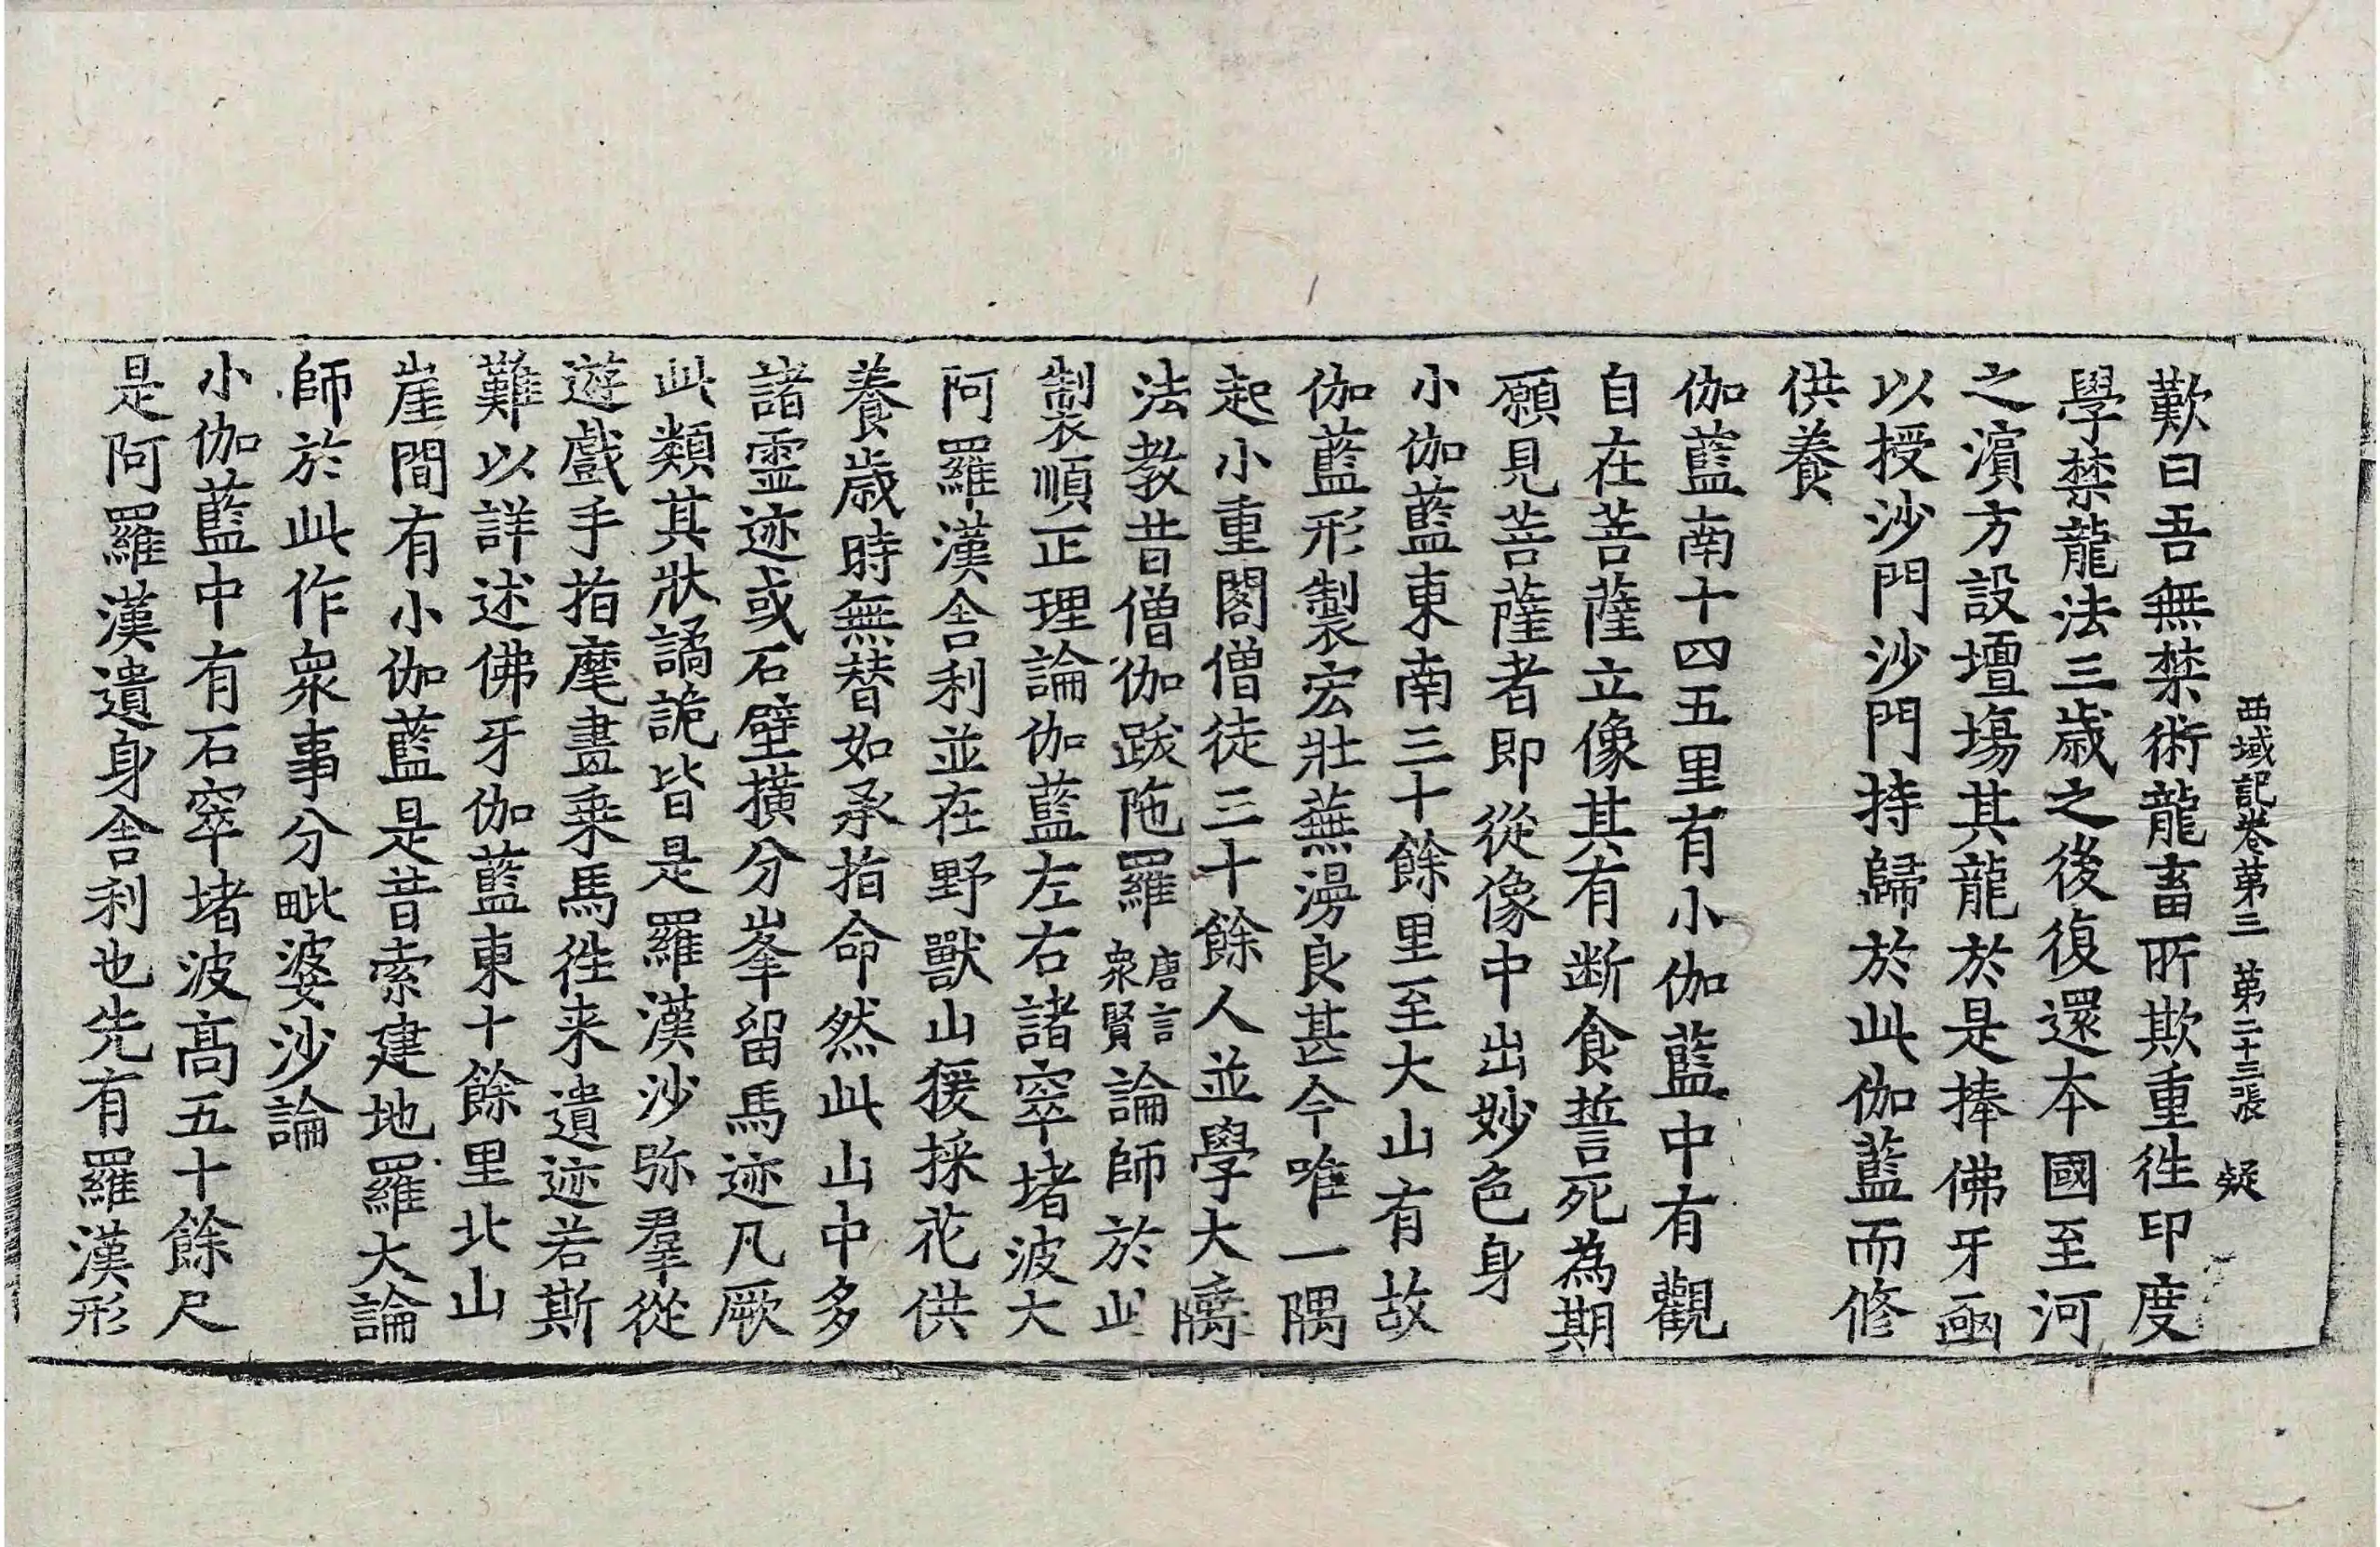 西域記卷第三 第二十三張 疑
歎曰吾無禁術龍畜所欺重徃印度
學禁龍法三歲之後復還本國至河
之濱方設壇場其龍於是捧佛牙函
以授沙門沙門持歸於此伽藍而修
供養
伽藍南十四五里有小伽藍中有觀
自在菩薩立像其有断食誓死為期
願見菩薩者即從像中出妙色身
小伽藍東南三十餘里至大山有故
伽藍形製宏壯蕪漫良甚今唯一隅
起小重閣僧徒三十餘人並學大乘
法教昔僧伽跋陁羅唐言衆賢論師於此
制裳順正理論伽藍左右諸窣堵波大
阿羅漢舍利並在野獸山猨採花供
養歲時無替如承指命然此山中多
諸霊迹或石壁橫分峯留馬迹凡厥
此類其狀譎詭皆是羅漢沙弥羣從
遊戲手指麾畫乗馬徃来遺迹若斯
難以詳述佛牙伽藍東十餘里北山
崖間有小伽藍是昔索建地羅大論
師於此作衆事分毗婆沙論
小伽藍中有石窣堵波高五十餘尺
是阿羅漢遺身舍利也先有羅漢形